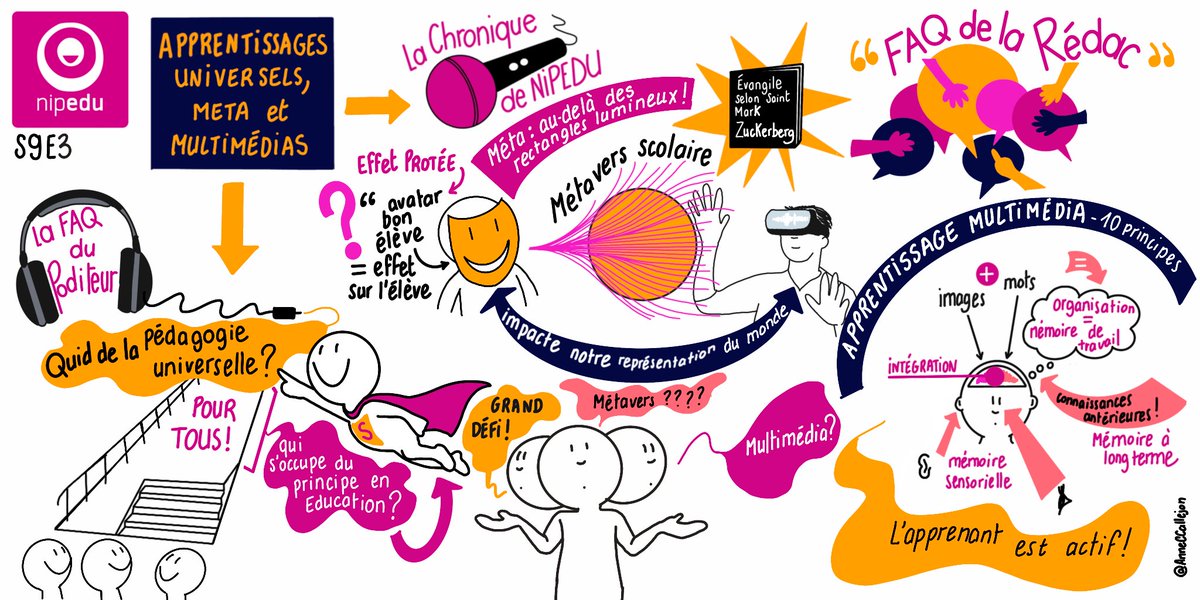 nipedu
S9E3
APPRENTISSAGES
UNIVERSELS,
META et
MULTIMÉDIAS
La Chronique
de NiPEDU
Méta : au-delà des
rectangles lumineux !
Évangile
selon Saint
Mark
Zuckerberg
“ FAQ de la Rédac ”
Effet PROTÉE
?
“ avatar
bon
élève
= effet
sur l'élève
Métavers scolaire
impacte notre représentation du monde
La FAQ
du
Poditeur
Quid de la pédagogie
universelle ?
POUR
TOUS !
S
qui
s'occupe du
principe en
Education ?
GRAND
DÉFI !
Métavers ????
Multimédia ?
APPRENTISSAGE MULTIMÉDIA - 10 principes
+
images
mots
organisation
=
mémoire de
travail
INTÉGRATION
connaissances
antérieures !
Mémoire à
long terme
mémoire
sensorielle
L'apprenant est actif !